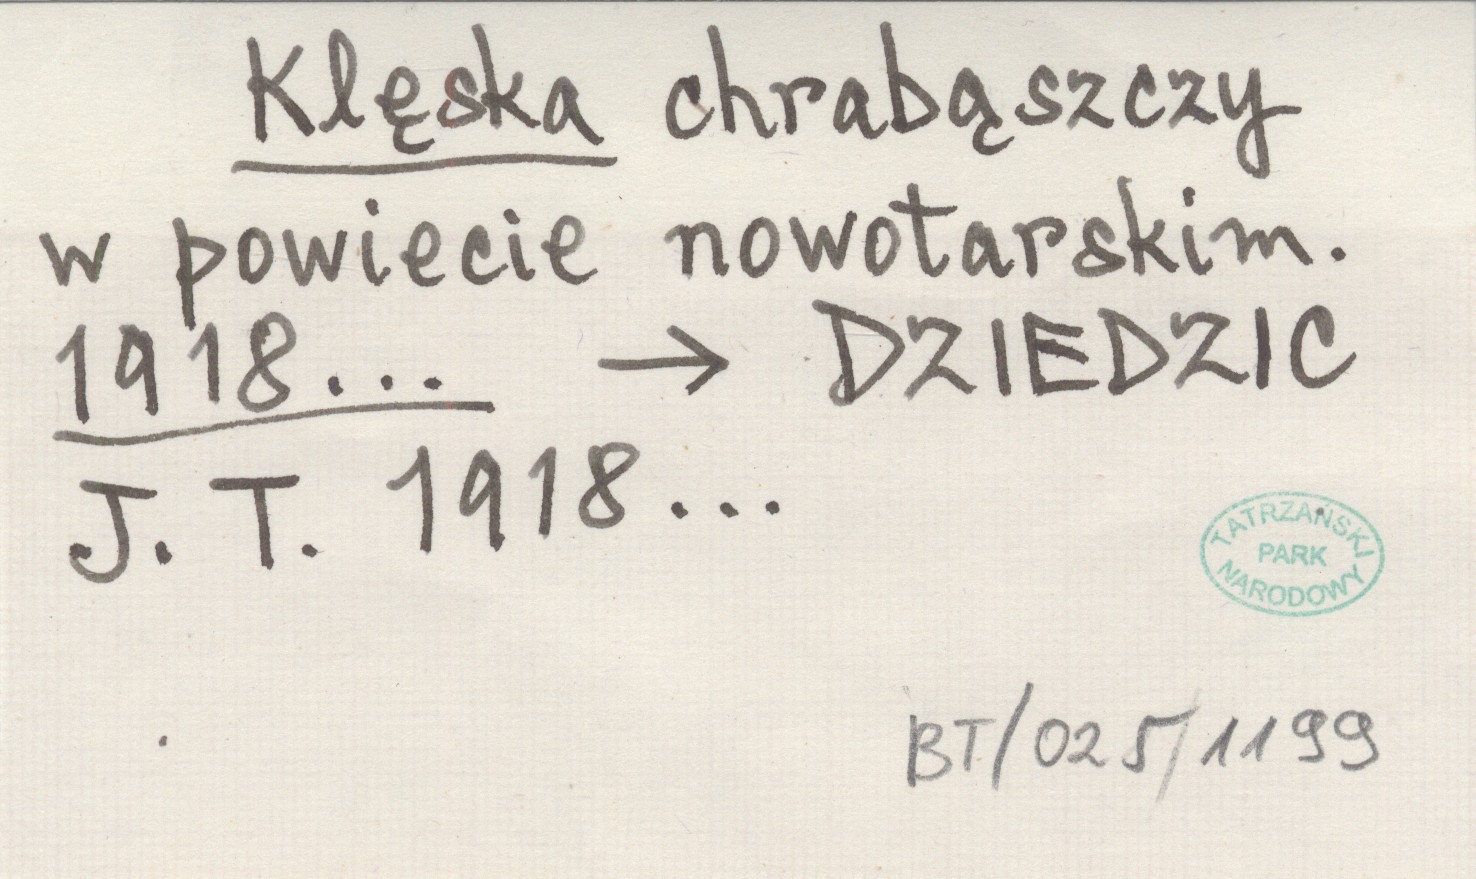 Klęska chrabąszczy
w powiecie nowotarskim.
1918... → DZIEDZIC
J. T. 1918...
TATRZAŃSKI
PARK
NARODOWY
BT/025/1199